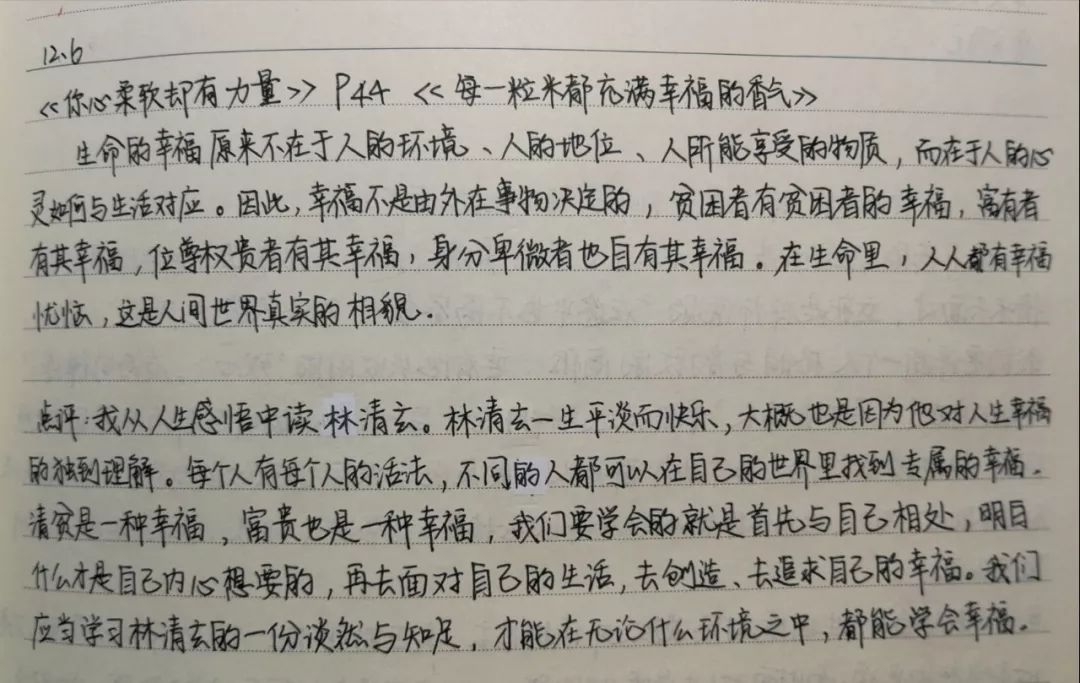 12.6
《你心柔软却有力量》 P44 《每一粒米都充满幸福的香气》
生命的幸福原来不在于人的环境、人的地位、人所能享受的物质，而在于人的心
灵如何与生活对应。因此，幸福不是由外在事物决定的，贫困者有贫困者的幸福，富有者
有其幸福，位尊权贵者有其幸福，身分卑微者也自有其幸福。在生命里，人人都有幸福
忧恼，这是人间世界真实的相貌.
点评：我从人生感悟中读林清玄。林清玄一生平淡而快乐，大概也是因为他对人生幸福
的独到理解。每个人有每个人的活法，不同的人都可以在自己的世界里找到专属的幸福.
清贫是一种幸福，富贵也是一种幸福，我们要学会的就是首先与自己相处，明白
什么才是自己内心想要的，再去面对自己的生活，去创造、去追求自己的幸福。我们
应当学习林清玄的一份淡然与知足，才能在无论什么环境之中，都能学会幸福.